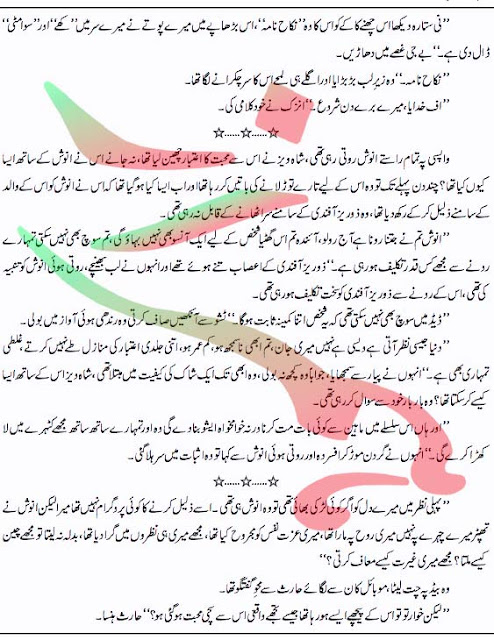 ”نی ستارہ دیکھا اس چھنے کاکے کو اس کا وہ ”نکاح نامہ“، اس بڑھاپے میں میرے پوتے نے میرے سر میں ”کھے“ اور ”سوا مٹی“
ڈال دی ہے۔“ بے جی غصے میں دھاڑیں۔
”نکاح نامہ۔“ وہ زیر لب بڑبڑایا اور اگلے ہی لمحے اس کا سر چکرانے لگا تھا۔
”اف خدایا، میرے برے دن شروع۔“ انزک نے خود کلامی کی۔
☆......☆......☆
واپسی پہ تمام راستے انوش روتی رہی تھی، شاہ ویز نے اس سے محبت کا اعتبار چھین لیا تھا، نہ جانے اس نے انوش کے ساتھ ایسا
کیوں کیا تھا؟ چند دن پہلے تک تو وہ اس کے لیے تارے توڑ لانے کی باتیں کر رہا تھا اور اب ایسا کیا ہو گیا تھا کہ اس نے انوش کو اس کے والد
کے سامنے ذلیل کر کے رکھ دیا تھا، وہ زوریز آفندی کے سامنے سر اٹھانے کے قابل نہ رہی تھی۔
”انوش تم نے جتنا رونا ہے آج رولو، آئندہ تم اس گھٹیا شخص کے لیے ایک آنسو بھی نہیں بہاؤ گی، تم سوچ بھی نہیں سکتی تمہارے
رونے سے مجھے کس قدر تکلیف ہو رہی ہے۔“ زوریز آفندی کے اعصاب تنے ہوئے تھے اور انہوں نے لب بھینچے، روتی ہوئی انوش کو تنبیہ
کی تھی، اس کے رونے سے زوریز آفندی کو سخت تکلیف ہو رہی تھی۔
”ڈیڈ میں سوچ بھی نہیں سکتی تھی کہ یہ شخص اتنا کمینہ ثابت ہوگا۔“ ٹشو سے آنکھیں صاف کرتی وہ رندھی ہوئی آواز میں بولی۔
”دنیا جیسی نظر آتی ہے ویسی ہے نہیں میری جان، تم ابھی نا سمجھ ہو، کم عمر ہو، اتنی جلدی اعتبار کی منازل طے نہیں کرتے، غلطی
تمہاری بھی ہے۔“ انہوں نے پیار سے سمجھایا، جواباً وہ کچھ نہ بولی، وہ ابھی تک ایک شاک کی کیفیت میں مبتلا تھی، شاہ ویز اس کے ساتھ ایسا
کیسے کر سکتا تھا؟ وہ بار بار خود سے سوال کر رہی تھی۔
”اور ہاں اس سلسلے میں ماہین سے کوئی بات مت کرنا ورنہ خوامخواہ ایشو بنا دے گی وہ اور تمہارے ساتھ ساتھ مجھے کٹہرے میں لا
کھڑا کرے گی۔“ انہوں نے گردن موڑ کر افسردہ اور روتی ہوئی انوش سے کہا تو وہ اثبات میں سر ہلا گئی۔
☆......☆......☆
”پہلی نظر میں میرے دل کو اگر کوئی لڑکی بھائی تھی تو وہ انوش ہی تھی۔ اسے ذلیل کرنے کا کوئی پروگرام نہیں تھا میرا لیکن انوش نے
تھپڑ میرے چہرے پہ نہیں میری روح پہ مارا تھا، میری عزت نفس کو مجروح کیا تھا، مجھے میری ہی نظروں میں گرا دیا تھا، بدلہ نہ لیتا تو مجھے چین
کیسے ملتا؟ مجھے میری غیرت کیسے معاف کرتی؟“
وہ بیڈ پہ چت لیٹا، موبائل کان سے لگائے حارث سے محو گفتگو تھا۔
”لیکن خوار تو تو اس کے پیچھے ایسے ہو رہا تھا جیسے تجھے واقعی اس سے سچی محبت ہو گئی ہو؟“ حارث ہنسا۔